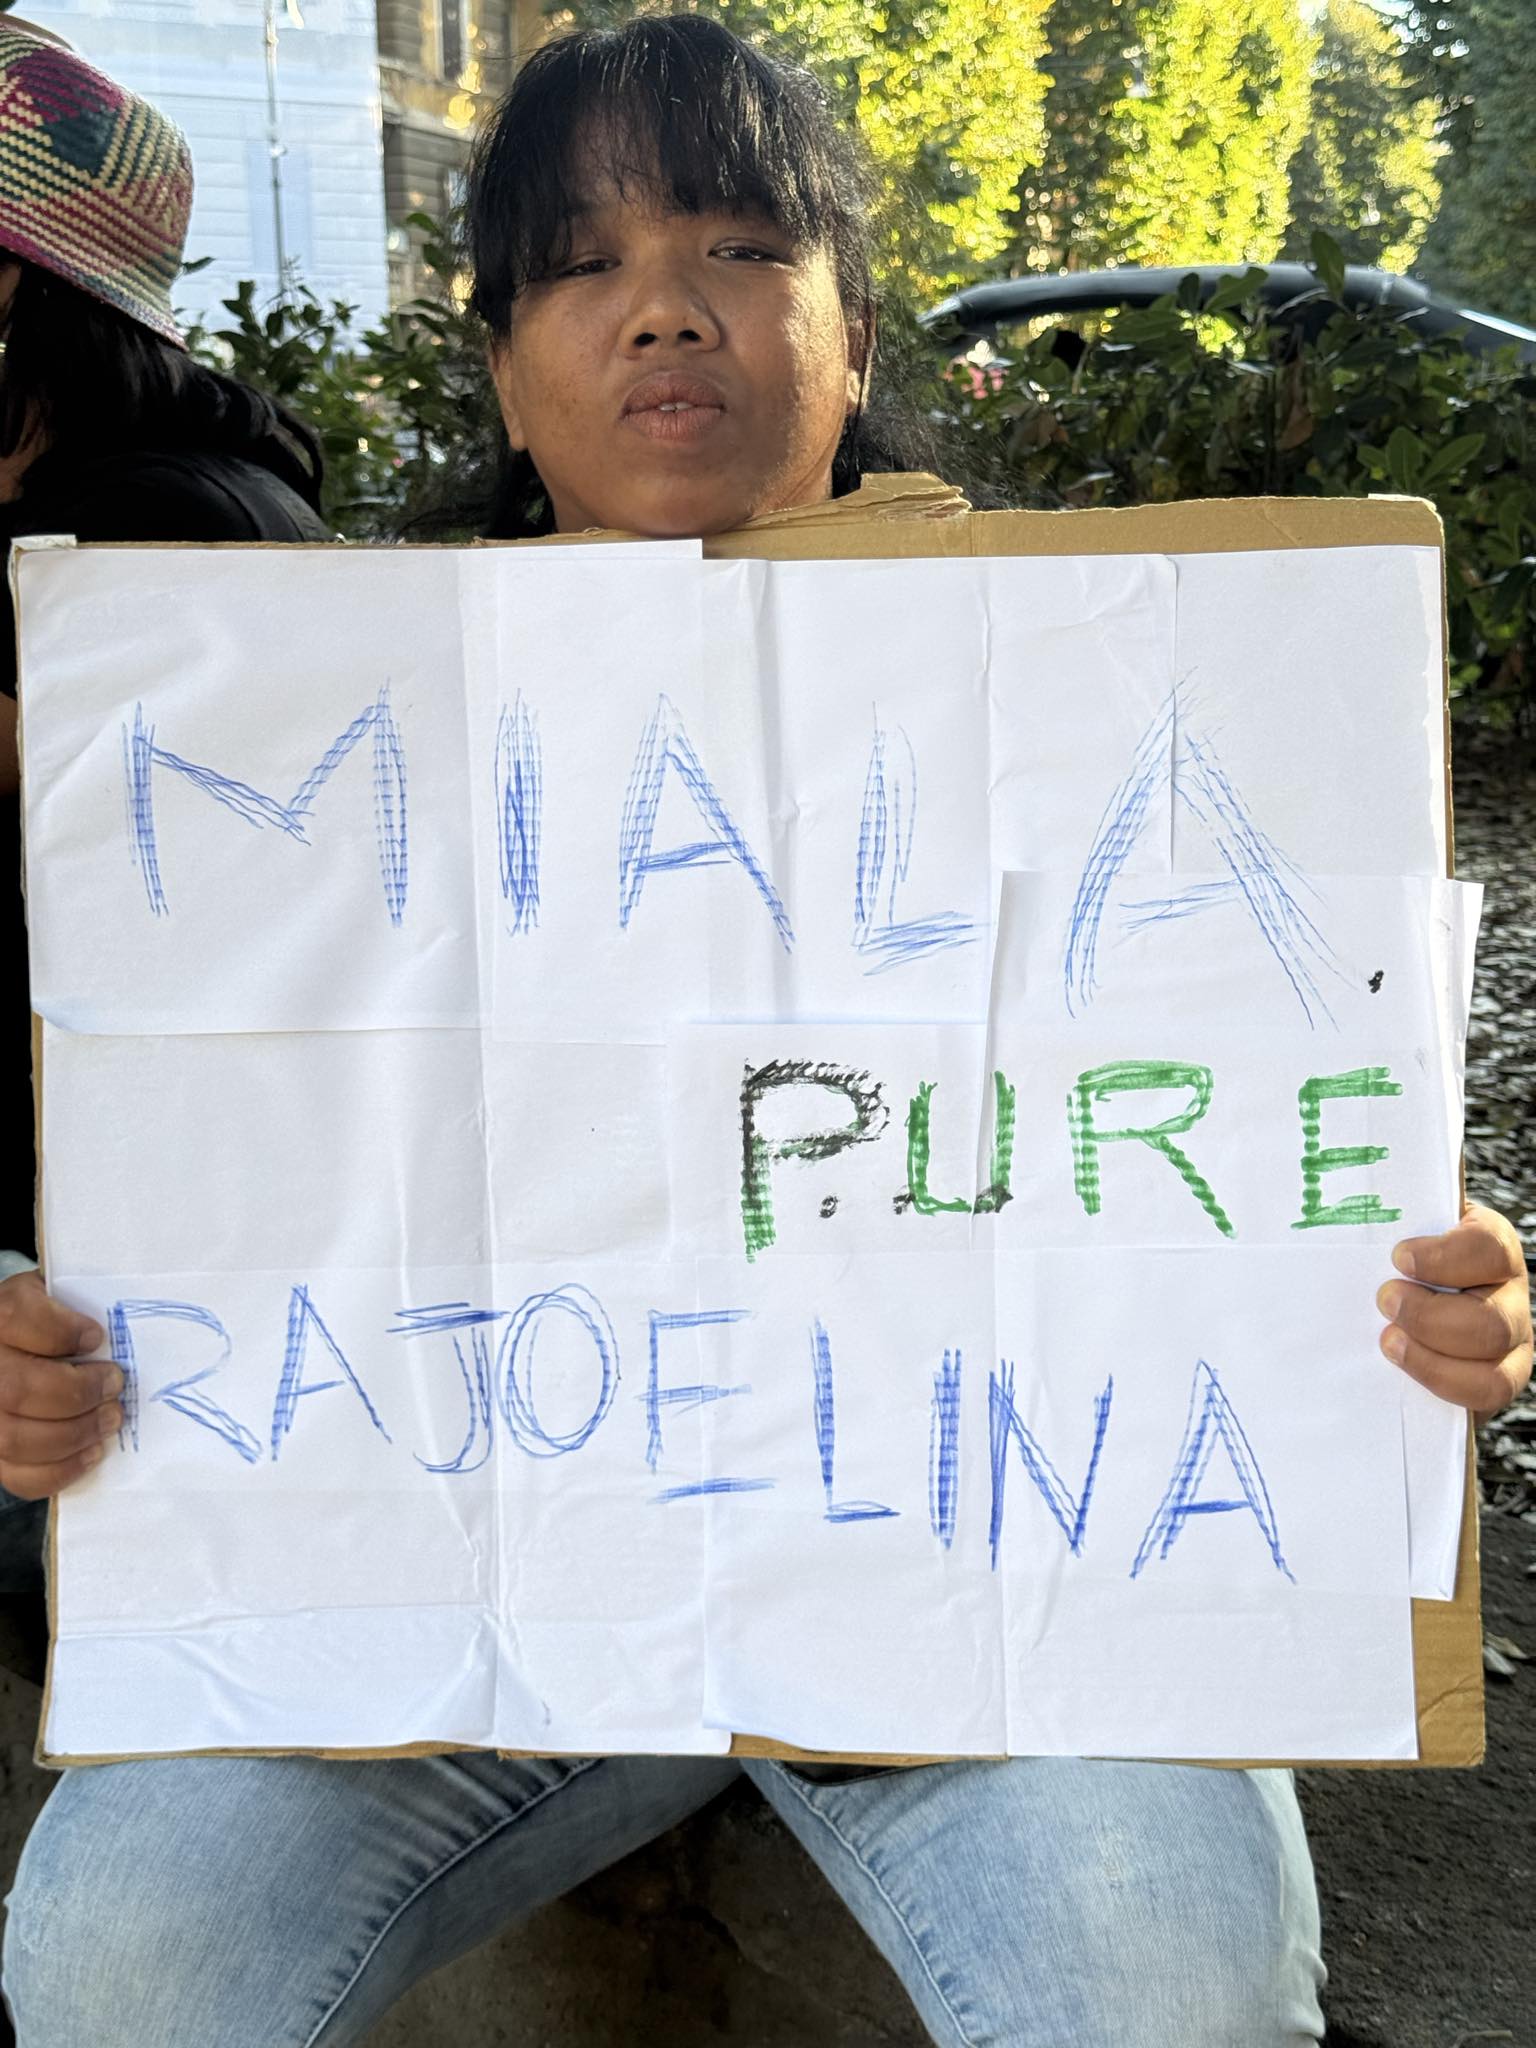 MIALA.
P.URE
RAJOELINA